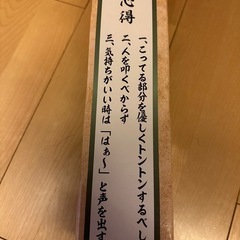 心得
一、こってる部分を優しくトントンするべし
二、人を叩くべからず
三、気持ちがいい時は「はぁ〜」と声を出す